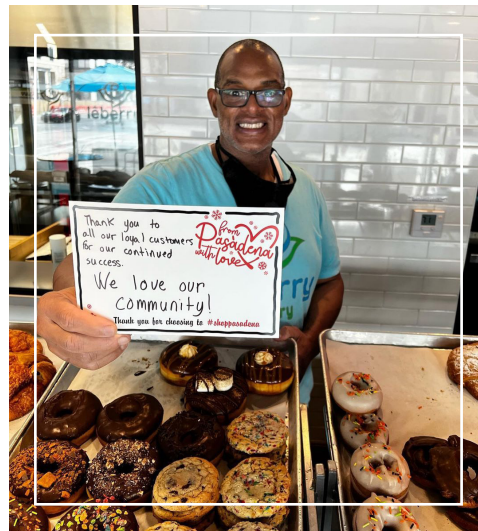 léberry
Thank you to
all our loyal customers
for our continued
success.
from
Pasadena
with love
We love our
community!
Thank you for choosing to #shoppasadena
rry
ry